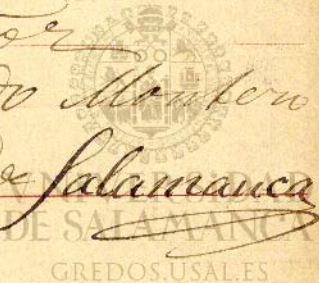 do Montero
de Salamanca
VNIVERSIDAD
DE SALAMANCA
GREDOS.USAL.ES